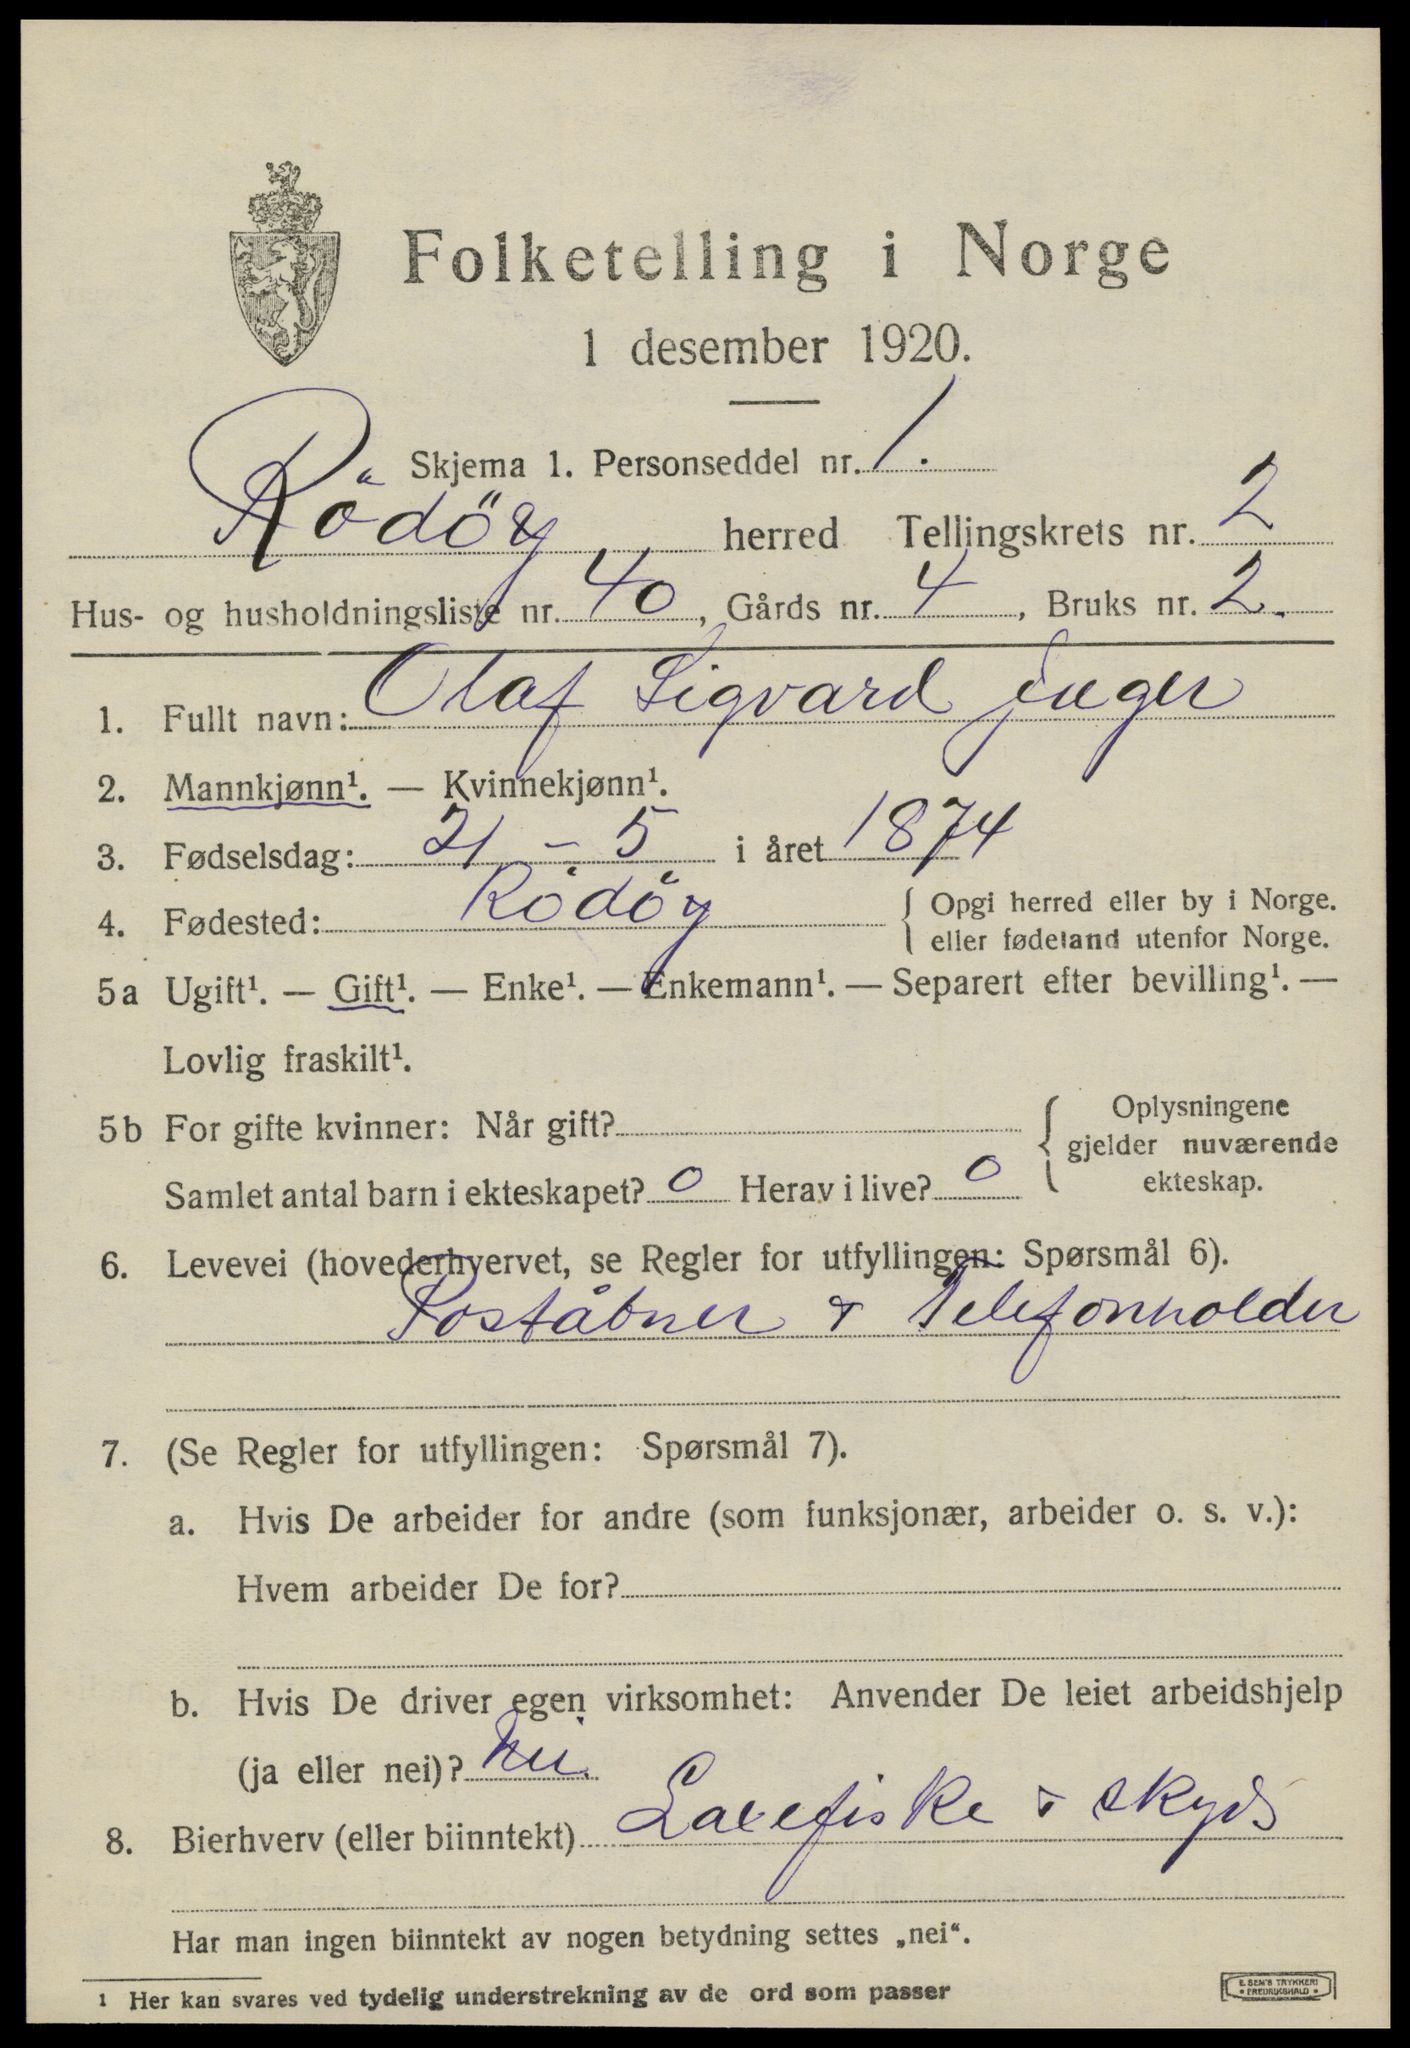 Folketelling i Norge
1 desember 1920.
Skjema 1. Personseddel nr. 1.
Rödöy herred Tellingskrets nr. 2
Hus- og husholdningsliste nr. 40, Gårds nr. 4, Bruks nr. 2.
1. Fullt navn: Olaf Sigvard Jæger
2. Mannkjønn¹. — Kvinnekjønn¹.
3. Fødselsdag: 21 - 5 i året 1874
4. Fødested: Rödöy { Opgi herred eller by i Norge.
eller fødeland utenfor Norge.
5a Ugift¹. — Gift¹. — Enke¹. — Enkemann¹. — Separert efter bevilling¹. —
Lovlig fraskilt¹.
5b For gifte kvinner: Når gift?
Samlet antal barn i ekteskapet? 0 Herav i live? 0
{ Oplysningene
gjelder nuværende
ekteskap.
6. Levevei (hovederhvervet, se Regler for utfyllingen: Spørsmål 6).
Poståbner & Telefonholder
7. (Se Regler for utfyllingen: Spørsmål 7).
a. Hvis De arbeider for andre (som funksjonær, arbeider o. s. v.):
Hvem arbeider De for?
b. Hvis De driver egen virksomhet: Anvender De leiet arbeidshjelp
(ja eller nei)? Nei.
8. Bierhverv (eller biinntekt) Laxefiske & skyds
Har man ingen biinntekt av nogen betydning settes „nei“.
1 Her kan svares ved tydelig understrekning av de ord som passer
E. SEM'S TRYKKERI
• FREDRIKSHALD •